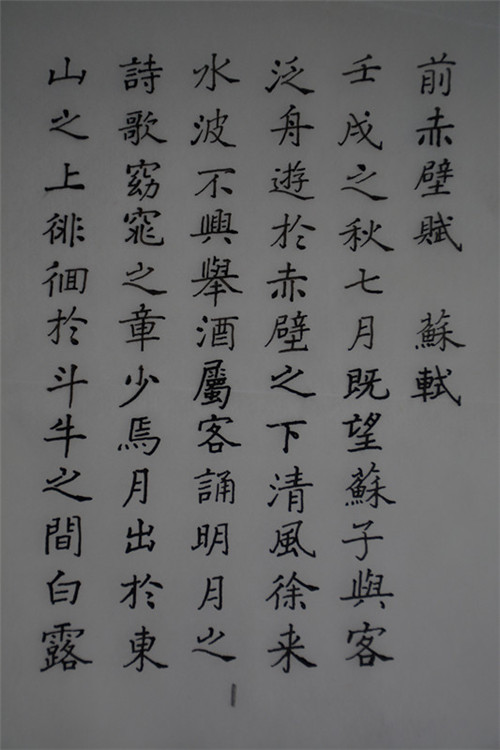 前赤壁賦 蘇軾
壬戌之秋七月既望蘇子與客
泛舟遊於赤壁之下清風徐来
水波不興舉酒屬客誦明月之
詩歌窈窕之章少焉月出於東
山之上徘徊於斗牛之間白露